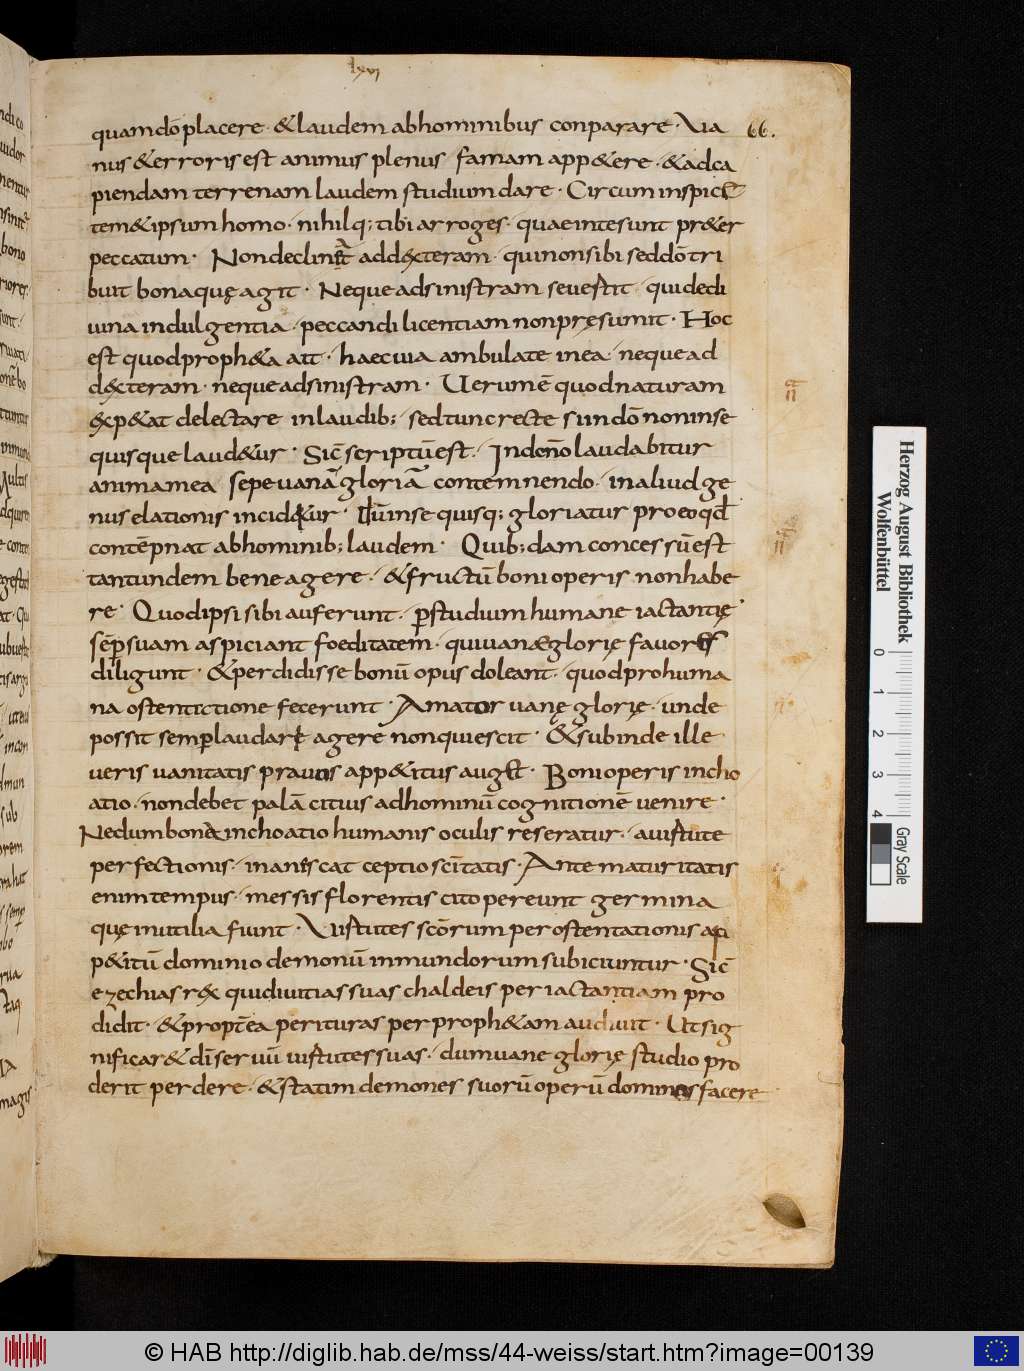 lxvi
quamdō placere · & laudem ab hominibus conparare · Via
66.
nus & erroris est animus plenus famam app&ere · & ad ca
piendam terrenam laudem studium dare · Circum inspice
tem&ipsum homo · nihilq; tibi arroges · quae in te sunt pr&er
peccatum · Non declin& ad d&teram · qui non sibi sed dō tri
buit bona quę agit · Neque ad sinistram se uertit · qui de di
uina indulgentia · peccandi licentiam non pręsumit · Hoc
est quod proph&a ait · haec uia ambulate in ea · neque ad
dexteram · neque ad sinistram · Uerum ē quod naturam
exp&at delectare in laudib; · sed tunc recte si in dō non in se
quisque laud&ur · Sic̄ scriptū est · In deno laudabitur
anima mea sepe uanā gloriā contemnendo · in aliud ge
nus elationis incid&ur · Dū in se quisq; gloriatur pro eo qd̄
contēpnat ab hominib; laudem · Quib;dam concessū est
tantundem bene agere · & fructū boni operis non habe
re · Quod ipsi sibi auferunt · ꝑ studium humane iactantię
sēꝑ suam aspiciant foeditatem · qui uanae glorię fauores
diligunt · & perdidisse bonū opus doleant · quod pro huma
na ostentatione fecerunt · Amator uanę glorię · unde
possit semꝑ laudare agere non quiescit · & subinde ille
ueris uanitatis prauus app&itus aug& · Boni operis incho
atio · non debet palā citius ad hominū cognitionē uenire ·
Ne dum bonae inchoatio humanis oculis reseratur · a uirtute
perfectionis · inanescat ceptio scītatis · Ante maturitatis
enim tempus · messis florentis cito pereunt germina
quę inutilia fiunt · Virtutes scōrum per ostentationis ap
p&itū dominio demonū inmundorum subiciuntur · Sic̄
ezechias rex qui diuitias suas chaldeis per iactantiam pro
didit · & propt̄ea perituras per proph&am audiuit · Ut sig
nificar& dī seruū uirtutes suas · dum uane glorię studio pro
derit perdere · & statim demones suorū operū dominos facere
Herzog August Bibliothek
Wolfenbüttel
0 1 2 3 4
Gray Scale
© HAB http://diglib.hab.de/mss/44-weiss/start.htm?image=00139